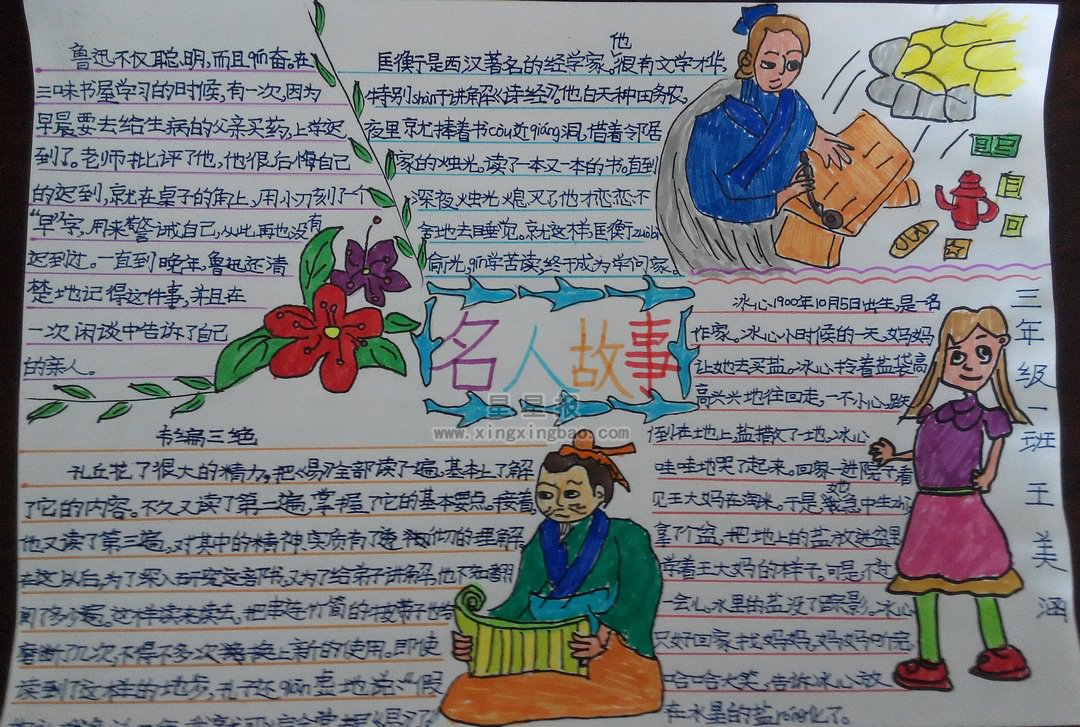 鲁迅不仅聪明,而且勤奋。在
三味书屋学习的时候,有一次,因为
早晨要去给生病的父亲买药,上学迟
到了。老师批评了他,他很后悔自己
的迟到,就在桌子的角上,用小刀刻了个
“早”字,用来警诫自己,从此再也没有
迟到过。一直到晚年,鲁迅还清
楚地记得这件事,并且在
一次闲谈中告诉了自己
的亲人。
匡衡于是西汉著名的经学家。他很有文学才华,
特别shàn于讲解《诗经》。他白天种田务农,
夜里就捧着书còu近qiáng洞,借着邻居
家的烛光,读了一本又一本的书。直到
深夜,烛光熄灭了他才恋恋不
舍地去睡觉。就这样,匡衡zuòbì
偷光,勤学苦读,终于成为学问家。
名人故事
星星报
www.xingxingbao.com
冰心1900年10月5日出生,是一名
作家。冰心小时候的一天,妈妈
让她去买盐。冰心拎着盐袋高
高兴兴地往回走,一不小心,跌
倒在地上,盐撒了一地,冰心
哇哇地哭了起来。回家一进院子看
见王大妈在淘米。于是她急中生
拿了个盆,把地上的盐放进盆里
学着王大妈的样子。可是,不
一会儿,水里的盐没了踪影。冰心
只好回家找妈妈,妈妈听完
哈哈大笑,告诉冰心放
在水里的盐róng化了。
三年级一班 王美涵
书编三绝
孔丘花了很大的精力,把《易》全部读了一遍,基本上了解
了它的内容。不久又读了第二遍,掌握了它的基本要点。接着
他又读了第三遍,对其中的精神、实质有了透彻的理解
在这以后,为了深入研究这部书,又为了给弟子讲解,他不知翻
阅了多少遍。这样读来读去,把串连竹简的牛皮带子也给
磨断了几次,不得不多次换上新的使用。即使
读到了这样的地步,孔子还qiān虚地说:“假